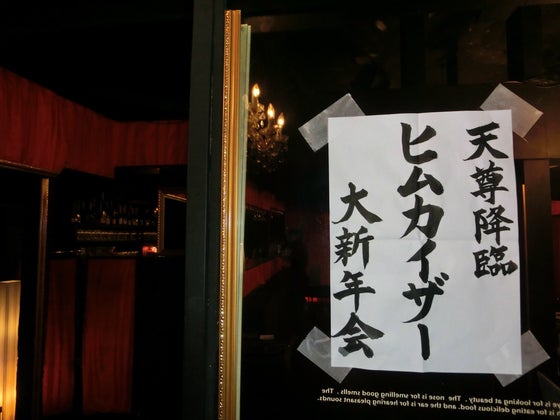 天尊降臨
ヒムカイザー
大新年会
is for looking at beauty. The nose is for smelling good smells. The
is for eating delicious food. and the ear is for hearing pleasant sounds.